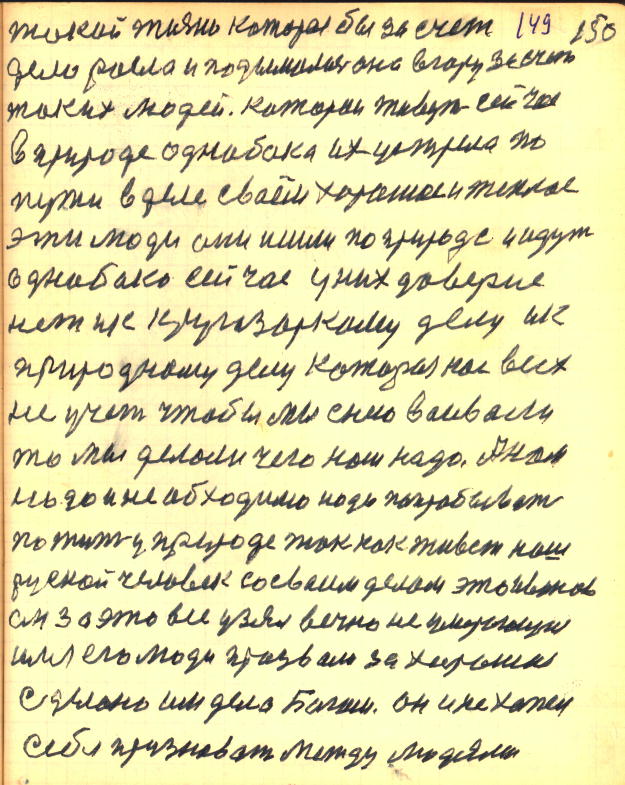 такой жизни которая бы за счет 149 150
дела росла и подымалася она вгору за счеть
таких людей. которыи живуть сейчас
в природе однобока их устрела по
пути в деле своем хорошае и теплае
эти люди они ишли по природе и идут
однобако сейчас у них доверие
нет и к кругазоркаму делу и к
природному делу которая нас всех
не учет чтобы мы с нею воевали
то мы делали чего нам надо. А нам
надо и необходимо надо попробывать
пожить у природе так как живет наш
руской человек со своим делом это иванов
он за это все узял вечно не умирающие
имя его люди празвали за хорошае
сделано им дело Богам. он и не хочет
себя признавать между людями